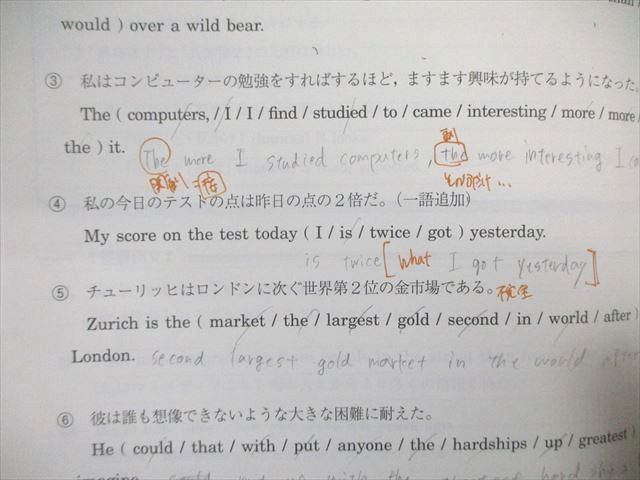 would ) over a wild bear.
③ 私はコンピューターの勉強をすればするほど，ますます興味が持てるようになった。
The ( computers, / I / I / find / studied / to / came / interesting / more / more /
the ) it.
The more I studied computers, the more interesting I
④ 私の今日のテストの点は昨日の点の２倍だ。（一語追加）
My score on the test today ( I / is / twice / got ) yesterday.
is twice [what I got yesterday]
⑤ チューリッヒはロンドンに次ぐ世界第２位の金市場である。
Zurich is the ( market / the / largest / gold / second / in / world / after )
London. second largest gold market in the world after
⑥ 彼は誰も想像できないような大きな困難に耐えた。
He ( could / that / with / put / anyone / the / hardships / up / greatest )
imagine.